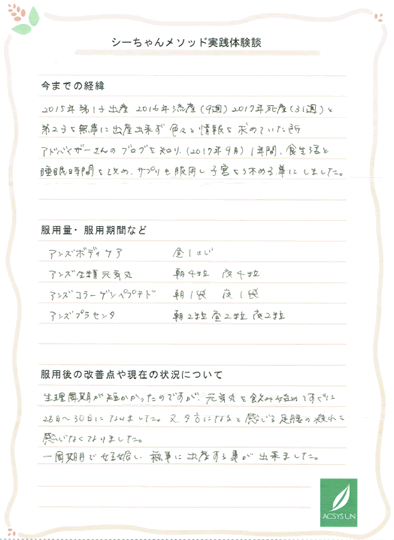 シーちゃんメソッド実践体験談
今までの経緯
2015年第1子出産 2016年流産(9週) 2017年死産(31週)と
第2子を無事に出産出来ず色々と情報を求めていた所
アドバイザーさんのブログを知り、(2017年9月) 1年間、食生活と
睡眠時間を改め、サプリも服用し子宮を休める事にしました。
服用量・服用期間など
アンズボディケア 金1さじ
アンズ生精元気丸 朝4粒 夜4粒
アンズコラーゲンペプチド 朝1袋 夜1袋
アンズプラセンタ 朝2粒 昼2粒 夜2粒
服用後の改善点や現在の状況について
生理周期が短かかったのですが、元気丸を飲み始めてすぐに
28日〜30日になりました。又夕方になると感じる足腰の疲れも
感じなくなりました。
一周期目で妊娠し、無事に出産する事が出来ました。
ACSYSUN